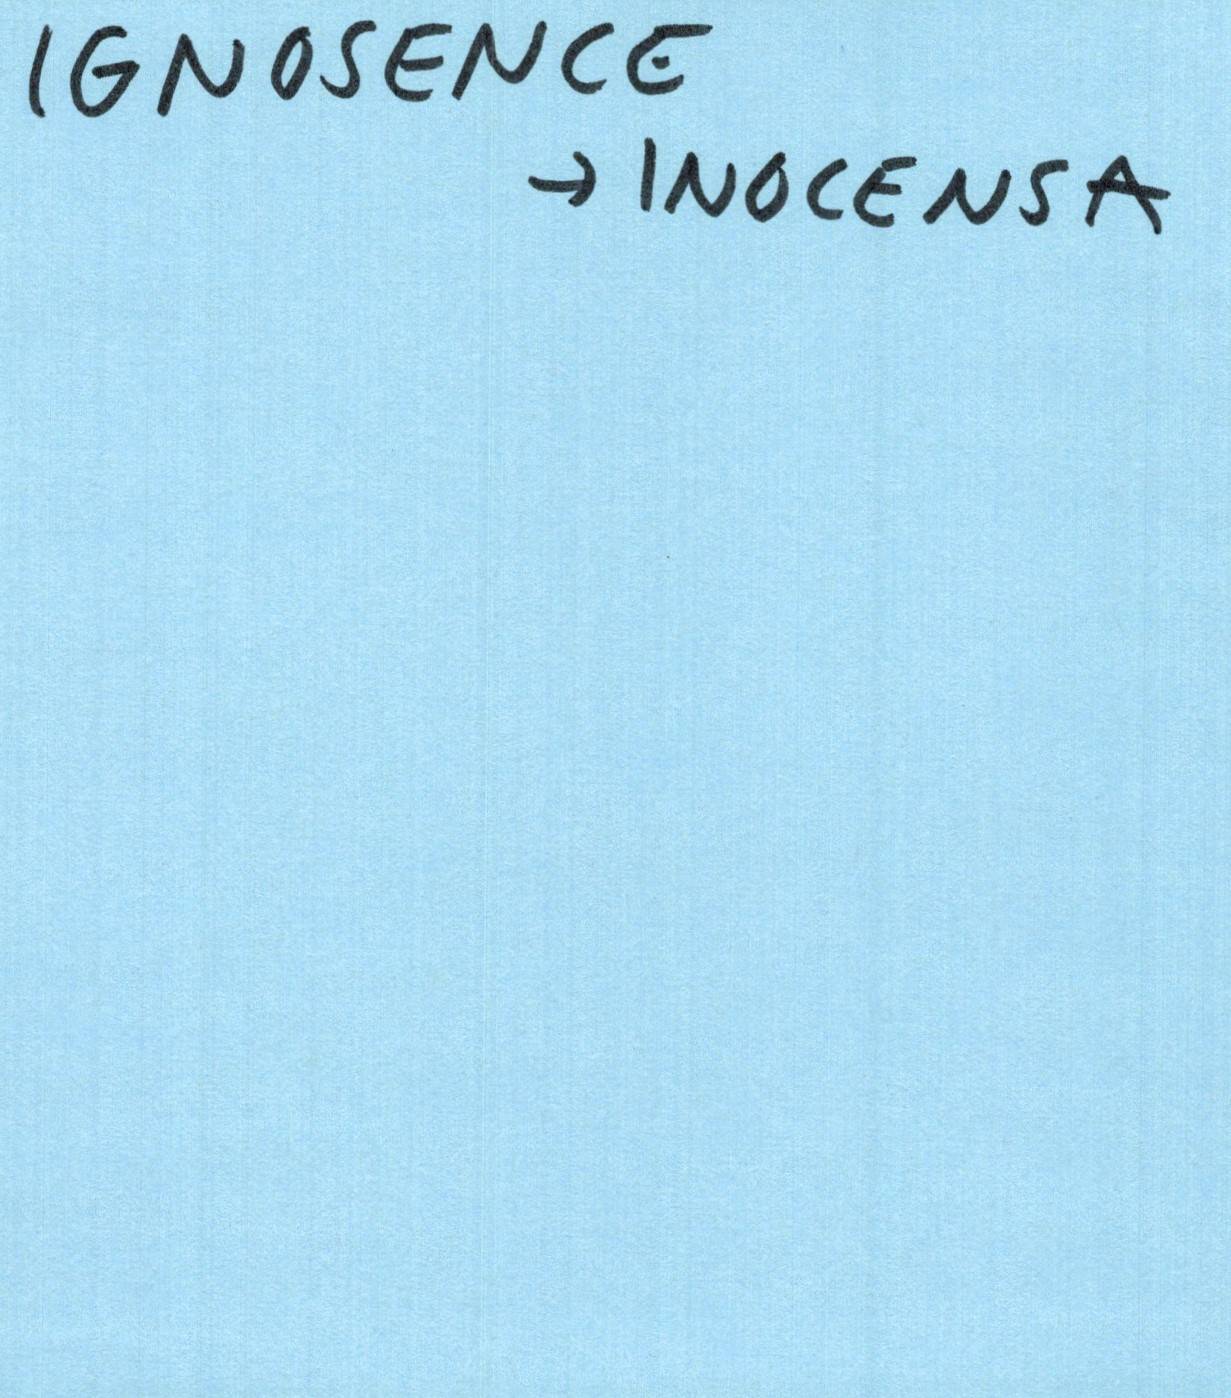 IGNOSENCE
→ INOCENSA